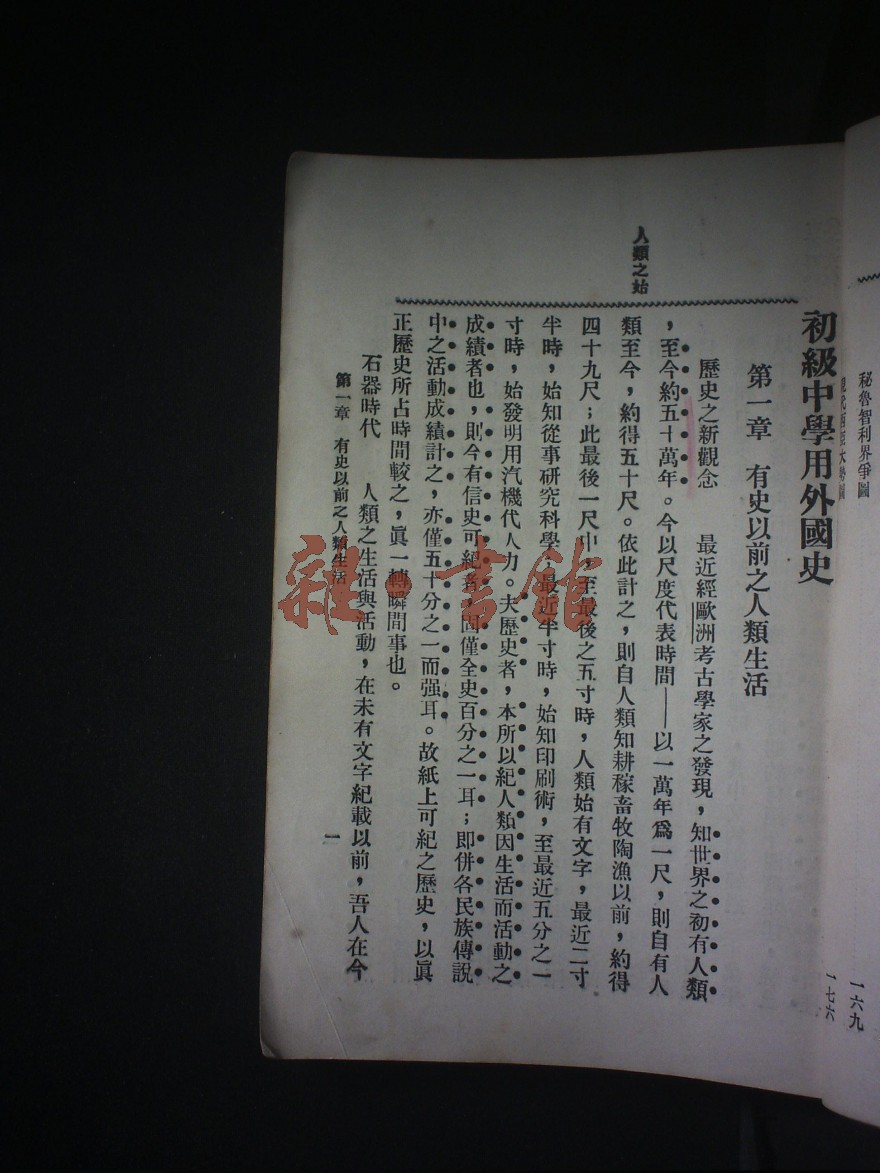 秘魯智利界爭圖
一六九
一七六
初級中學用外國史
第一章　有史以前之人類生活
人類之始
歷史之新觀念　最近經歐洲考古學家之發現，知世界之初有人類
，至今約五十萬年。今以尺度代表時間——以一萬年爲一尺，則自有人
類至今，約得五十尺。依此計之，則自人類知耕稼畜牧陶漁以前，約得
四十九尺；此最後一尺中，至最後之五寸時，人類始有文字，最近二寸
半時，始知從事研究科學，最近半寸時，始知印刷術，至最近五分之一
寸時，始發明用汽機代人力。夫歷史者，本所以紀人類因生活而活動之
成績者也，則今有信史可紀者，固僅全史百分之一耳；即併各民族傳說
中之活動成績計之，亦僅五十分之一而强耳。故紙上可紀之歷史，以眞
正歷史所占時間較之，眞一轉瞬間事也。
石器時代　人類之生活與活動，在未有文字紀載以前，吾人在今
第一章　有史以前之人類生活
一
雜·書館